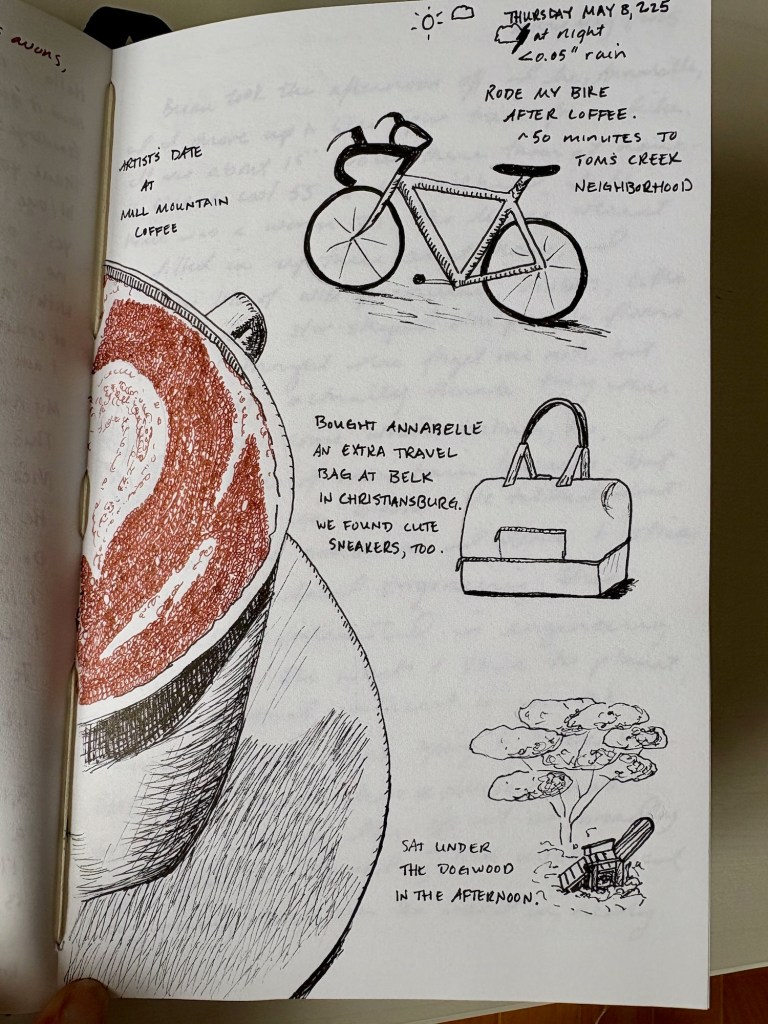 THURSDAY MAY 8, 225
at night
<0.05" rain
RODE MY BIKE
AFTER COFFEE.
~50 minutes TO
TOM'S CREEK
NEIGHBORHOOD
ARTIST'S DATE
AT
MILL MOUNTAIN
COFFEE
BOUGHT ANNABELLE
AN EXTRA TRAVEL
BAG AT BELK
IN CHRISTIANSBURG.
WE FOUND CUTE
SNEAKERS, TOO.
SAT UNDER
THE DOGWOOD
IN THE AFTERNOON.